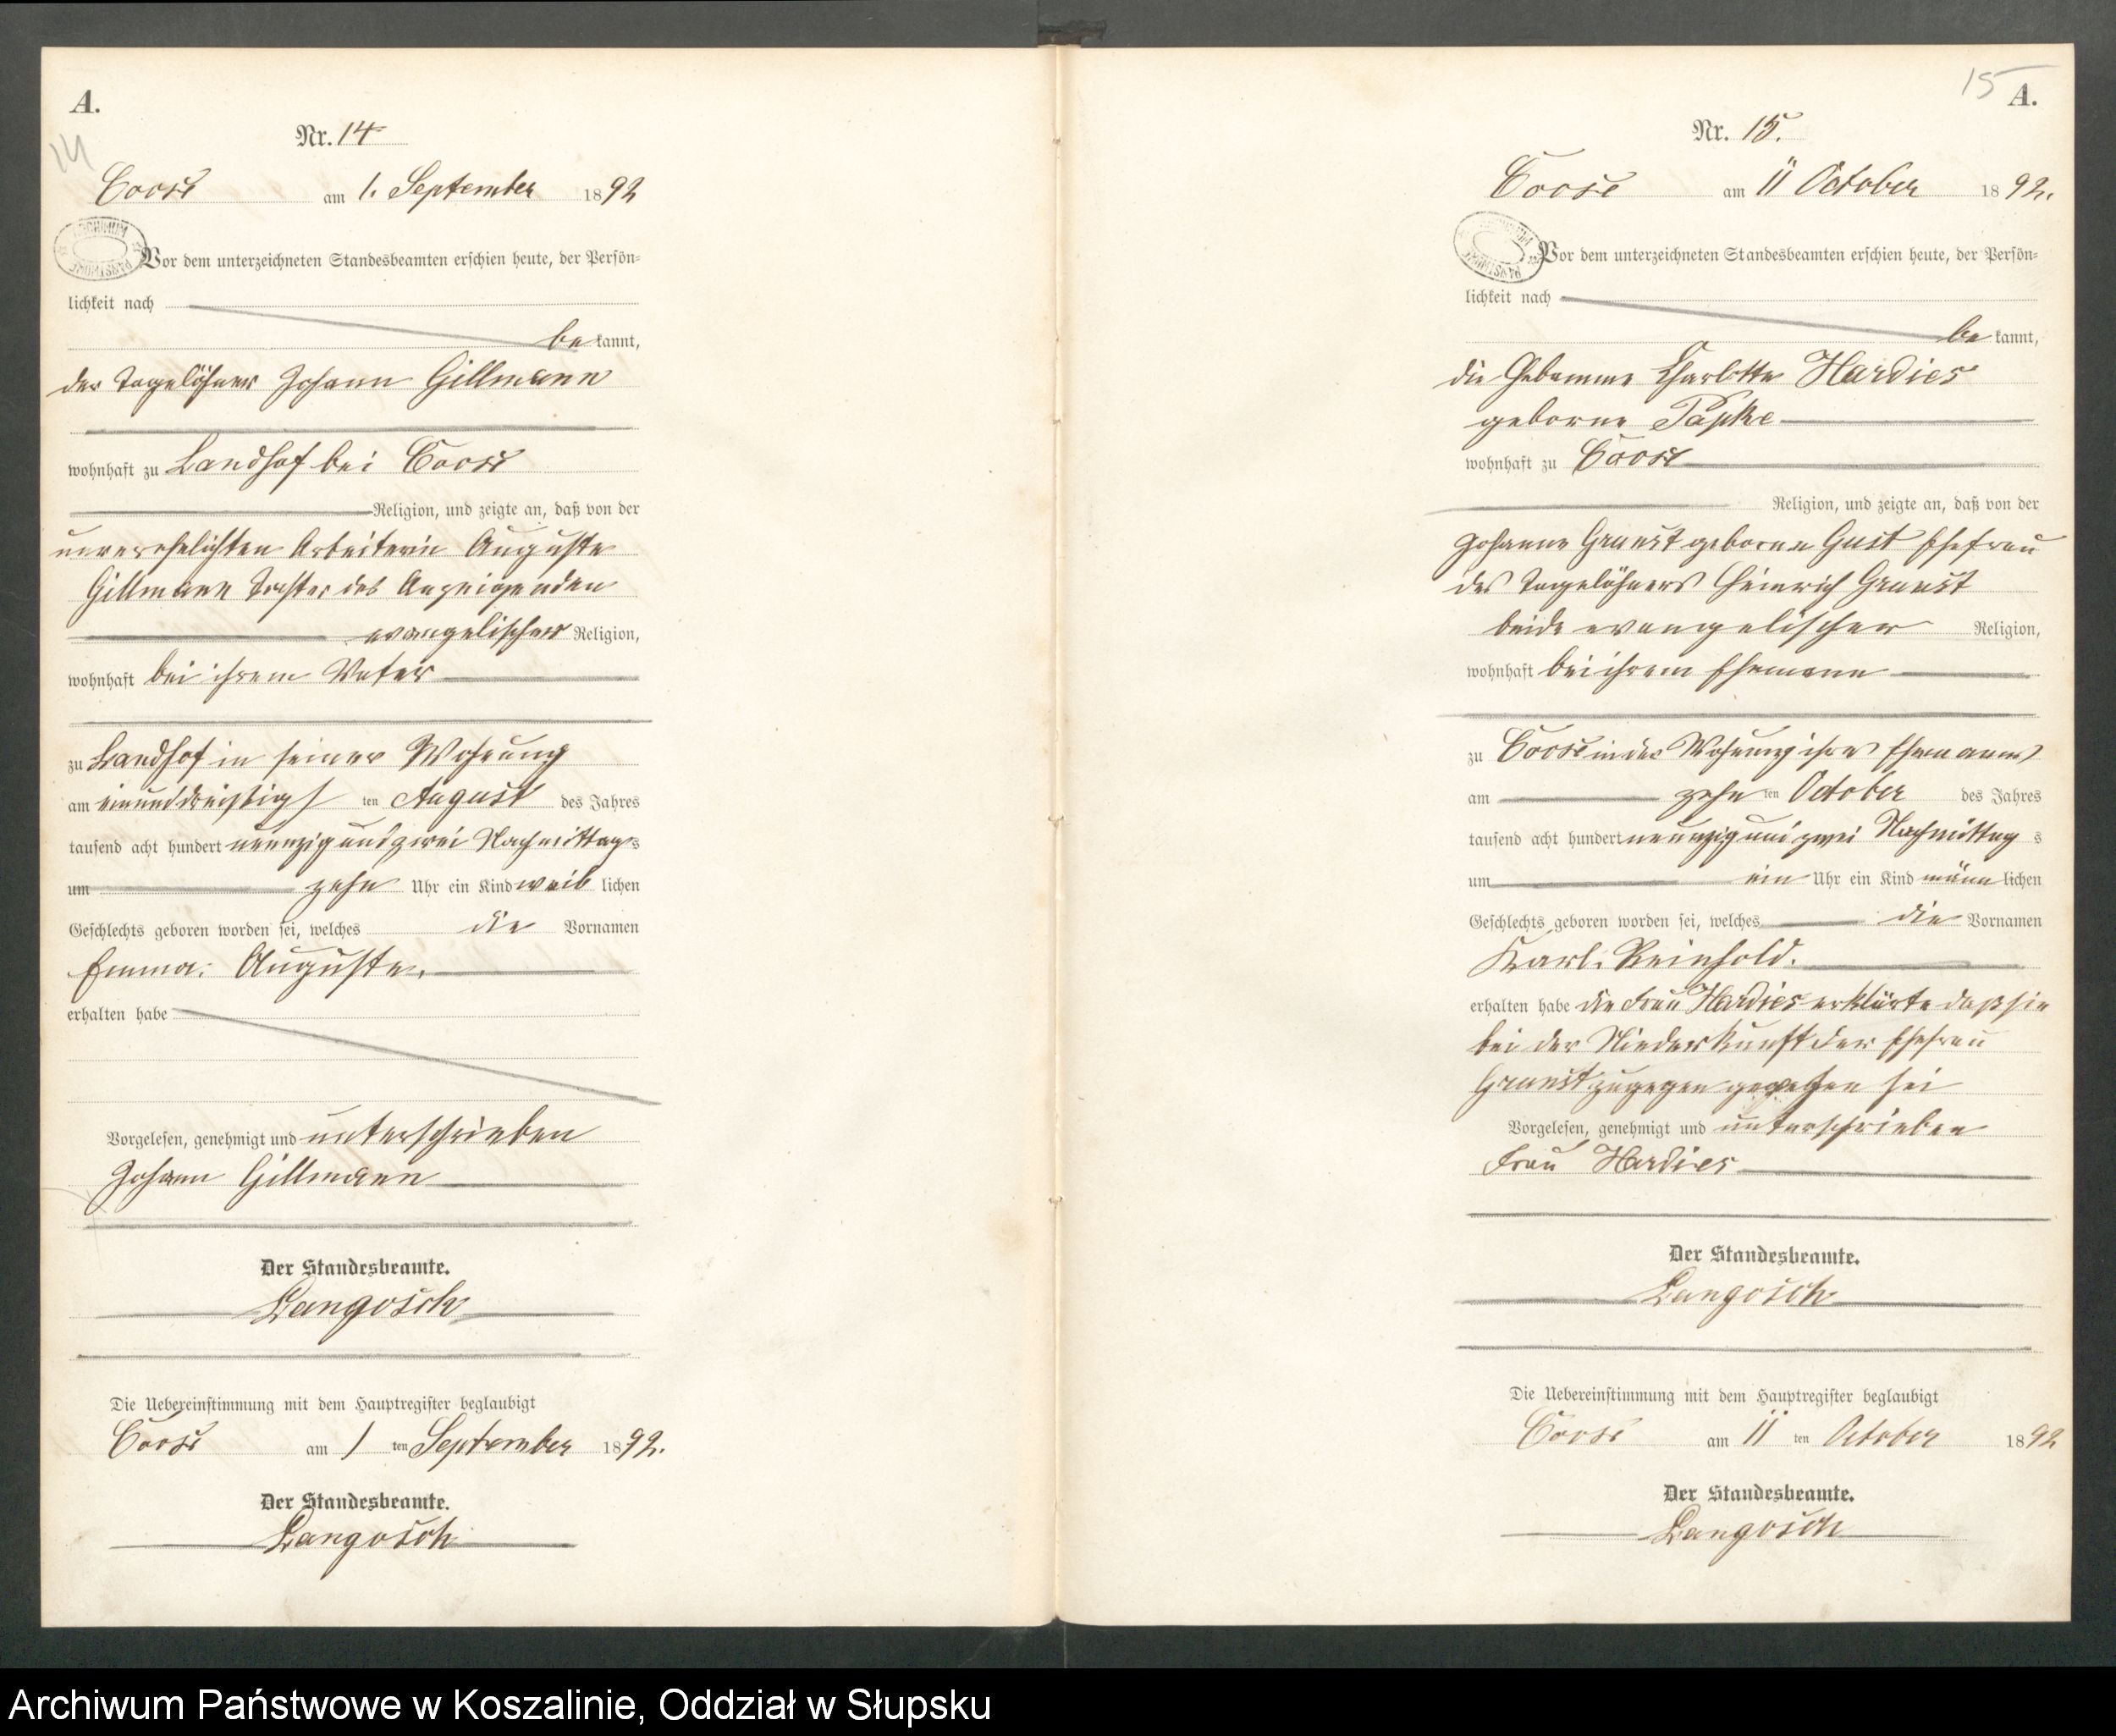 A.
14
Nr. 14
Coose am 1. September 1892
ARCHIWUM PAŃSTWOWE
Vor dem unterzeichneten Standesbeamten erschien heute, der Persön-
lichkeit nach
be kannt,
der Tagelöhner Johann Gillmann
wohnhaft zu Landhof bei Coose
Religion, und zeigte an, daß von der
unverehelichten Arbeiterin Auguste
Gillmann Tochter des Anzeigenden
evangelischer Religion,
wohnhaft bei ihrem Vater
zu Landhof in seiner Wohnung
am einunddreißigs ten August des Jahres
tausend acht hundert neunzig und zwei Nachmittags
um zehn Uhr ein Kind weib lichen
Geschlechts geboren worden sei, welches die Vornamen
Emma. Auguste.
erhalten habe
Vorgelesen, genehmigt und unterschrieben
Johann Gillmann
Der Standesbeamte.
Langosch
Die Uebereinstimmung mit dem Hauptregister beglaubigt
Coose am 1 ten September 1892.
Der Standesbeamte.
Langosch
15 A.
Nr. 15.
Coose am 11 October 1892.
ARCHIWUM PAŃSTWOWE
Vor dem unterzeichneten Standesbeamten erschien heute, der Persön-
lichkeit nach
be kannt,
die Hebamme Charlotte Hardies
geborne Papke
wohnhaft zu Coose
Religion, und zeigte an, daß von der
Johanne Granst geborene Gust Ehefrau
des Tagelöhners Heinrich Granst
beide evangelischer Religion,
wohnhaft bei ihrem Ehemann
zu Coose in der Wohnung ihres Ehemanns
am zehn ten October des Jahres
tausend acht hundert neunzig und zwei Nachmittag s
um ein Uhr ein Kind männ lichen
Geschlechts geboren worden sei, welches die Vornamen
Karl. Reinhold.
erhalten habe die Frau Hardies erklärte daß sie
bei der Niederkunft der Ehefrau
Granst zugegen gewesen sei
Vorgelesen, genehmigt und unterschrieben
Frau Hardies
Der Standesbeamte.
Langosch
Die Uebereinstimmung mit dem Hauptregister beglaubigt
Coose am 11 ten October 1892
Der Standesbeamte.
Langosch
Archiwum Państwowe w Koszalinie, Oddział w Słupsku